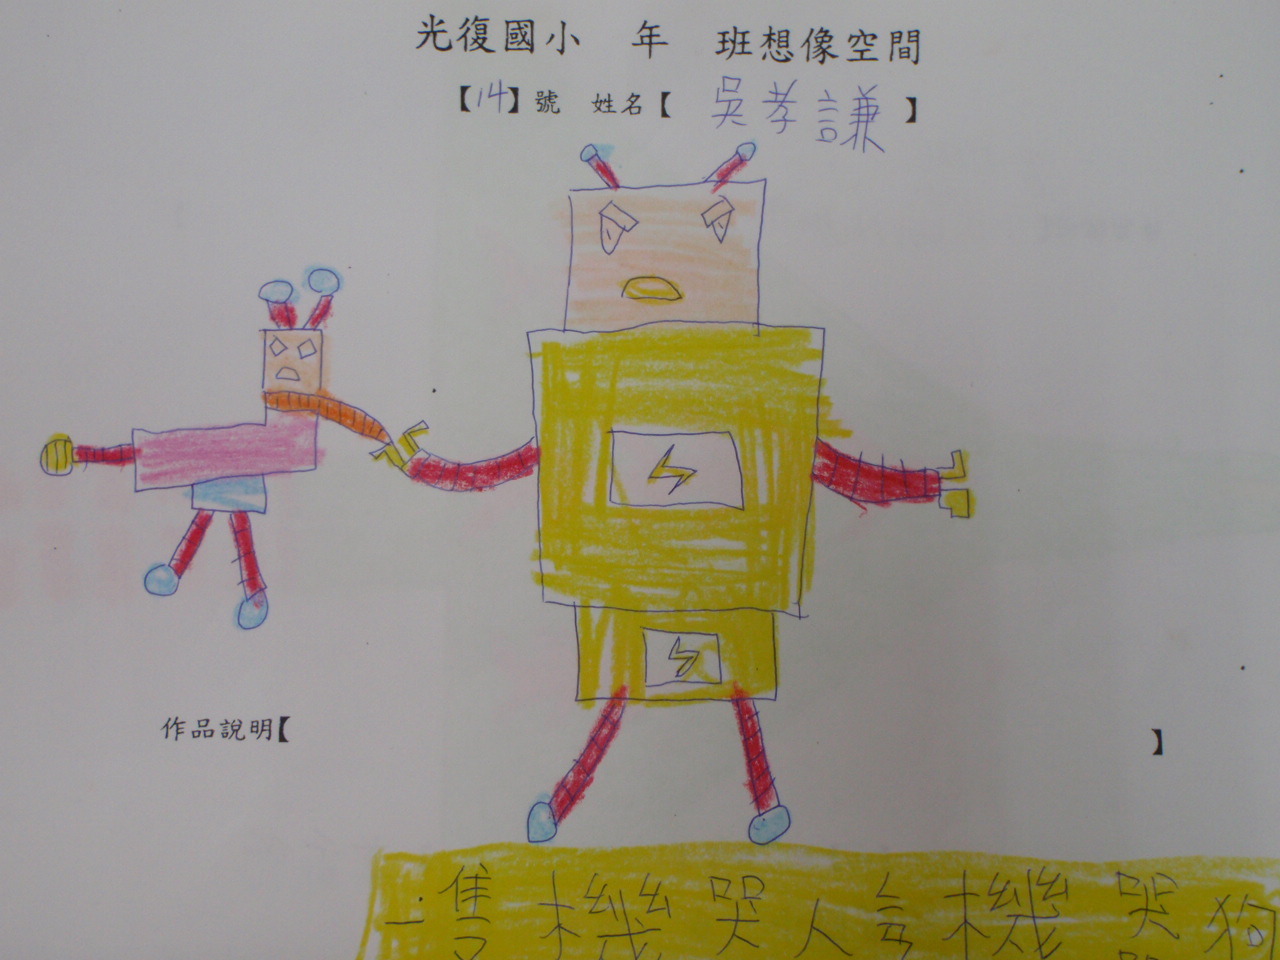 光復國小 年 班想像空間
【14】號 姓名【 吳孝謙 】
作品說明【 】
一隻機器人牽機器狗